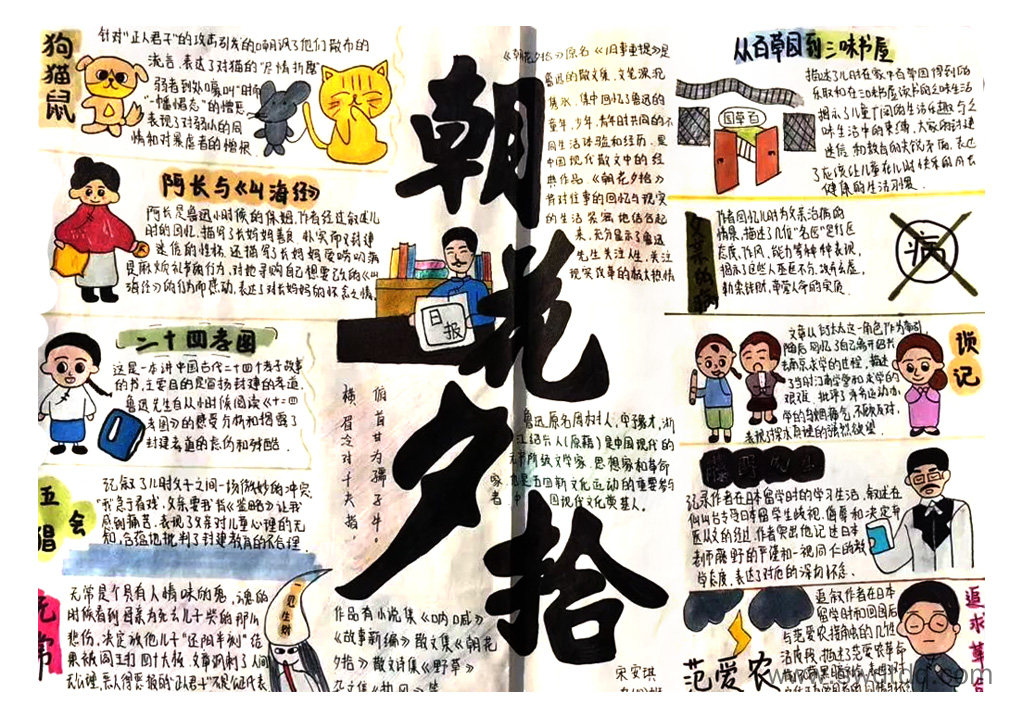 狗猫鼠
针对"正人君子"的攻击引发的嘲讽了他们散布的
流言,表达了对猫的"尽情折磨
弱者到处嗥叫"时而
"一幅慢态"的憎恶
表现了对弱小的同
情和对暴虐者的憎恨.
阿长与《山海经》
阿长是鲁迅小时候的保姆,作者经过叙述儿
时的回忆,描写了长妈妈善良 朴实而又封建
迷信的性格,还描写了长妈妈爱唠叨满
是麻烦礼节的行为,对她寻购自己想要已久的《山
海经》的行为而感动,表达了对长妈妈的怀念之情.
二十四孝图
这是一本讲中国古代二十四个孝子故事
的书,主要目的是宣扬封建的孝道.
鲁迅先生自从小时候阅读《二十四
孝图》的感受分析和揭露了
封建孝道的虚伪和残酷
五猖会
记叙了儿时父子之间一场微妙的冲突
"我急于看戏,父亲要我背《鉴略》让我
感到痛苦,表现了父亲对儿童心理的无
知,含蕴地批判了封建教育的不合理
无常
无常是个具有人情味的鬼,魂的
时候看到母亲为死去儿子哭的那么
悲伤,决定放他儿子"还阳半刻"结
果被阎王打四十大板,文章讽刺了人间
一见生财
朝花夕拾
《朝花夕拾》原名《旧事重提》是
鲁迅的散文集,文笔深沉
隽永,集中回忆了鲁迅的
童年,少年,青年时共同的不
同生活体验和经历,是
中国现代散文中的经
典作品《朝花夕拾》
将对往事的回忆与现实
的生活紧密地结合起
来,充分显示了鲁迅
先生关注人生,关注
现实改革的极大热情
日报
横眉冷对千夫指,
俯首甘为孺子牛.
鲁迅,原名周树人,字豫才,浙
江绍兴人(原籍)是中国现代的
无产阶级文学家,思想家和革命
家,也是五四新文化运动的重要参与
者 中国现代文化奠基人.
作品有小说集《呐喊》
《故事新编》散文集《朝花
夕拾》散文诗集《野草》
杂文集《热风》等
宋安淇
从百草园到三味书屋
百草园
描述了儿时在家中百草园得到的
乐取和在三味书屋读书的乏味生活
揭示了儿童广阔的生活乐趣与乏
味生活中的束缚,大家的封建
迷信和教育的尖锐矛盾,表达
了应该让儿童在儿时快乐的成长
健康的生活习惯.
父亲的病
病
作者回忆儿时为父亲治病的
情景,描述了几位"名医"是行医
态度,作风,能力等种种表现,
揭示了这些人巫医不分,故弄玄虚,
勒索钱财,草菅人命的实质.
琐记
文章从衍太太这一角色作为牵引
随后,回忆了自己离开绍兴
去南京求学的过程,描述
了当时江南学堂和求学的
艰难,批评了洋务运动办
学的乌烟瘴气,不顾反对,
表现了探求真理的强烈欲望.
藤野先生
记录作者在日本留学时的学习生活,叙述在
仙台受日本留学生歧视,侮辱和决定弃
医从文的经过,作者突出他记述日本
老师藤野的严谨和一视同仁的教
学态度,表达了对他的深切怀念.
范爱农
追叙作者在日本
留学时和回国后
与范爱农接触的几件
活片段,描述了范爱农革命
追求革命
www.owatdq.com